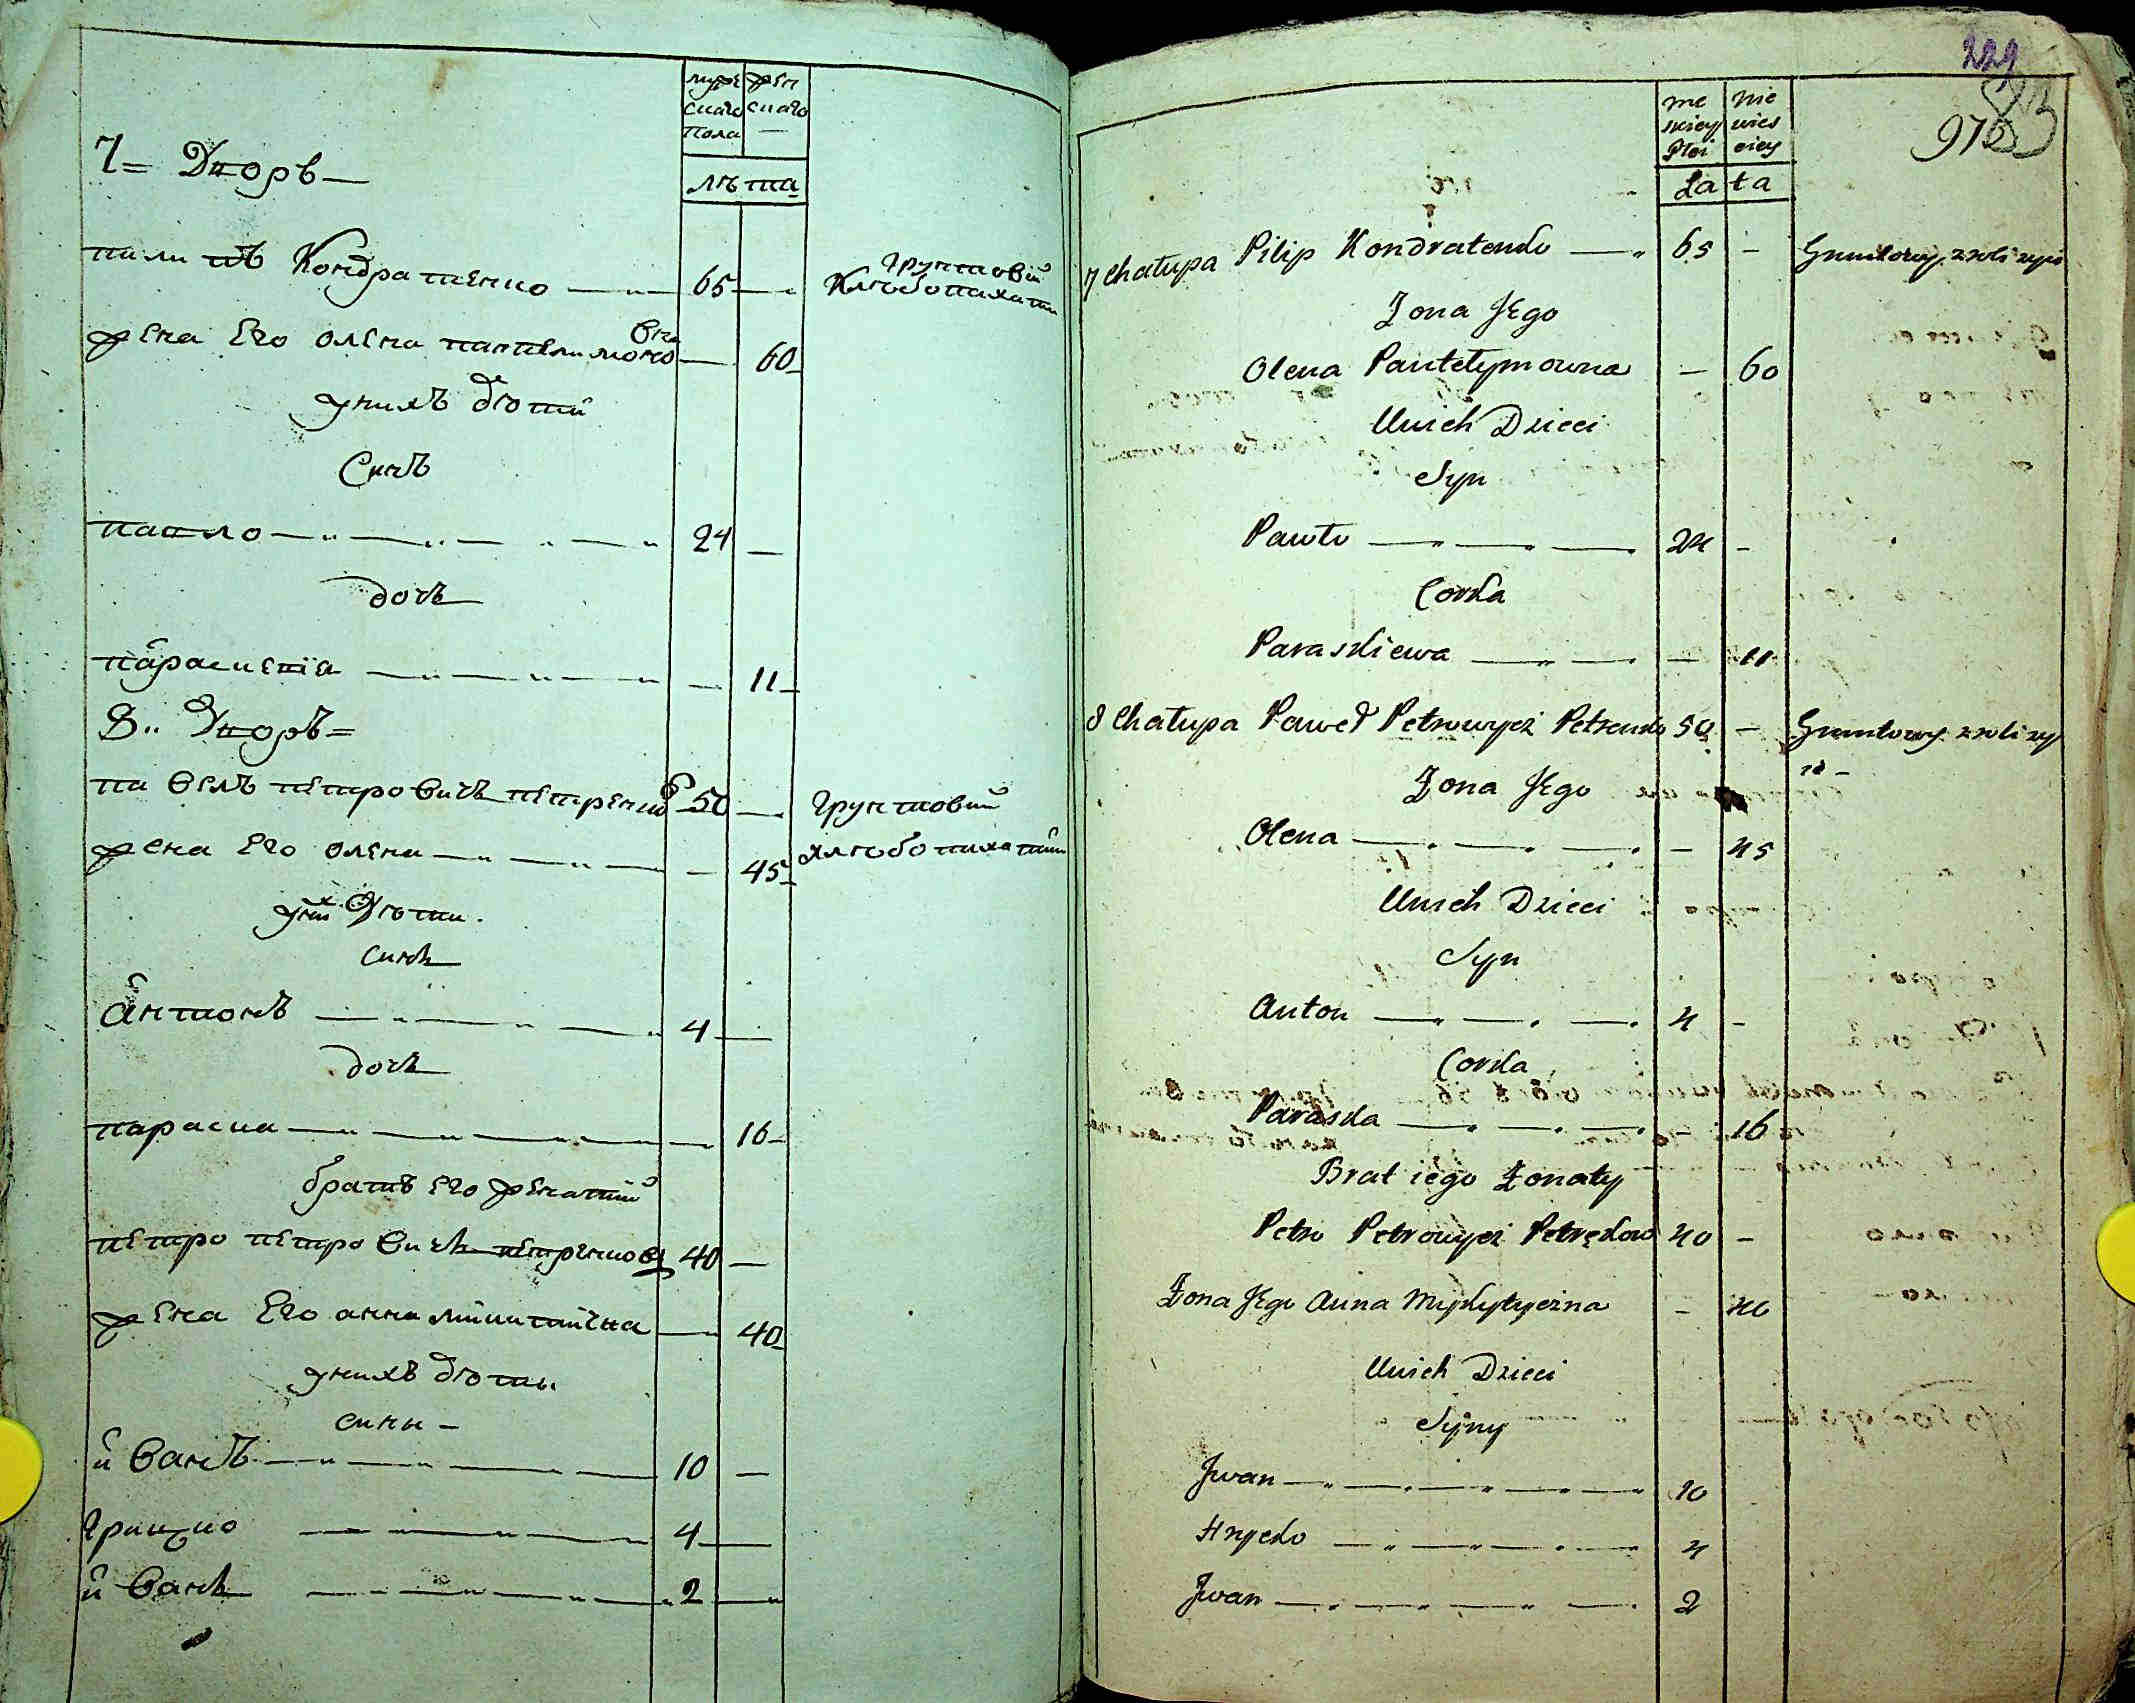 муже
скаго
пола
жен
скаго
—
лѣта
7= Дворъ—
пилипъ Кондратенко — „ — 65 — „
грунтовій
Хлѣбопахати
жена Его олена пантелимоно
вна — 60
у нихъ дѣти
Синъ
павло — „ — „ — „ — „ 24 —
дочь
параскевіа — „ — „ — „ — 11
8„ Дворъ=
павелъ петровичъ петренко 50 — „ грунтовий
жена Его олена — „ — „ — 45 хлѣбопахатний
у них Дѣти.
синъ
антонъ — „ — „ — „ 4 —
дочь
параска — „ — „ — „ — 16
братъ Его женатий
петро петровичъ петренков 40 —
жена Его анна микитиевна — „ 40
у нихъ дѣти
сины —
иванъ — „ — „ — 10 —
грицко — — „ — 4 —
иванъ — „ — „ — „ 2 — „
229
976
83
me
skiey
Płci
nie
wies
ciey
Lata
7 Chałupa Pilip Kondratenko — „ 65 - Gruntowy z roli żyie
Żona Jego
Olena Pantełymowna - 60
U nich Dzieci
Syn
Pawło — „ — „ — 24 -
Corka
Paraskiewa — „ — „ - 11
8 Chałupa Paweł Petrowycz Petrenko 50 - Gruntowy z roli ży
ie -
Żona Jego
Olena — „ — „ — „ - 45
U nich Dzieci
Syn
Anton — „ — „ — „ 4 -
Corka
Paraska — „ — „ — „ - 16
Brat iego Żonaty
Petro Petrowycz Petrękow 40 -
Żona Jego Anna Mykytyczna - 40
U nich Dzieci
Syny
Jwan — „ — „ — „ — 10
Hrycko — „ — „ — „ — 4
Jwan — „ — „ — „ — 2